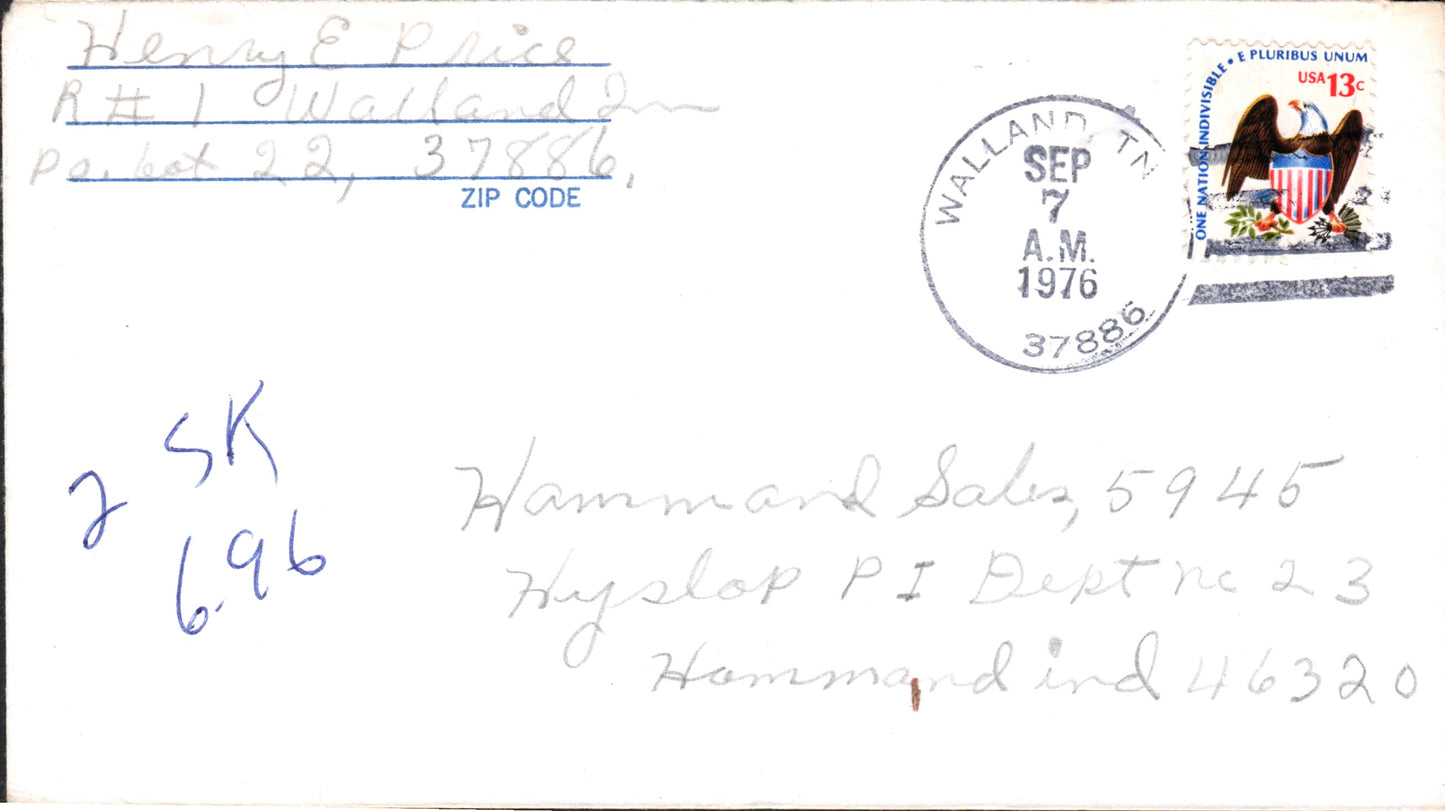 Henry E Price
R#1 Walland Tnn
po. box 22, 37886,
ZIP CODE
WALLAND, TN
SEP
7
A.M.
1976
37886
ONE NATION INDIVISIBLE • E PLURIBUS UNUM
USA 13c
2 SK
6.96
Hammand Sales, 5945
Hyslop Pl Dept nc 23
Hammand ind 46320